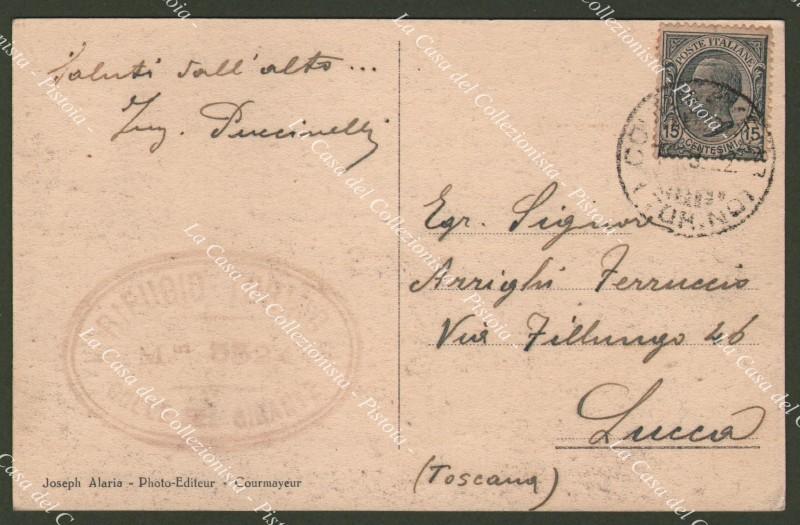 Saluti dall'alto ...
Ing. Puccinelli
POSTE ITALIANE
15 15
CENTESIMI
Egr. Signore
Arrighi Ferruccio
Via Fillungo 46
Lucca
(Toscana)
RIFUGIO
Joseph Alaria - Photo-Editeur - Courmayeur
La Casa del Collezionista - Pistoia -